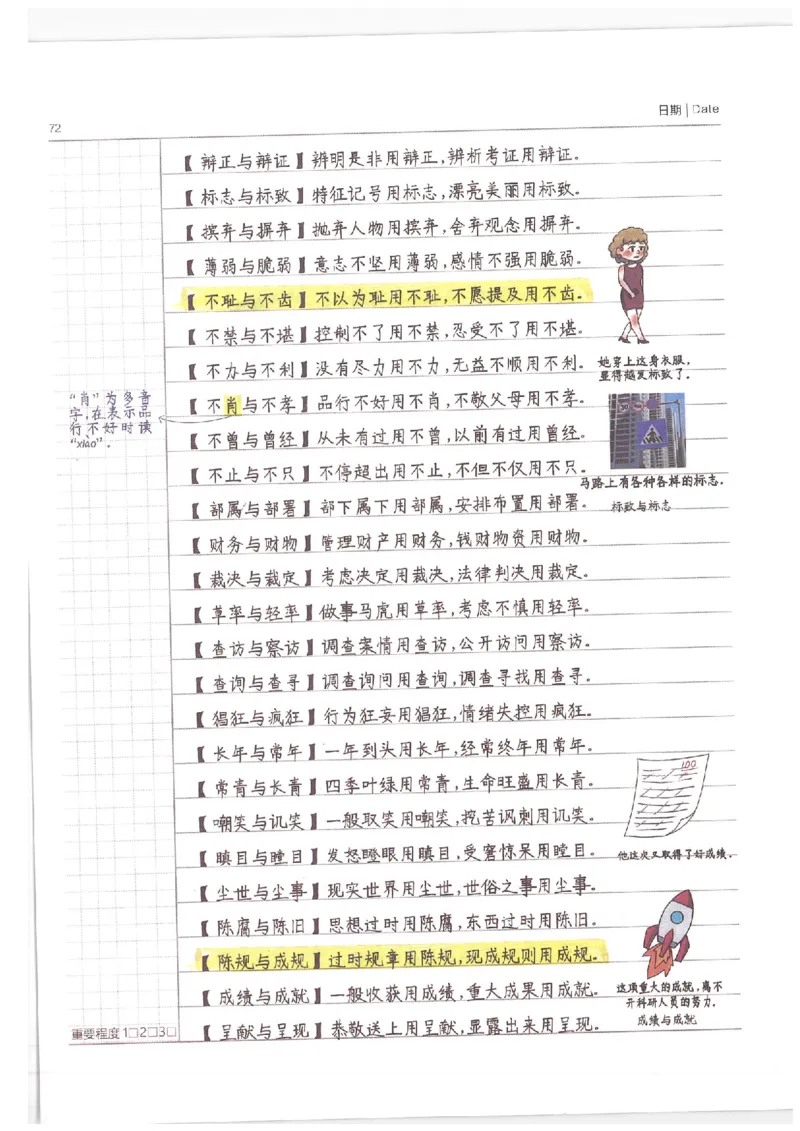 日期 | Date
72
【辩正与辩证】辨明是非用辩正,辨析考证用辩证。
【标志与标致】特征记号用标志,漂亮美丽用标致。
【摈弃与摒弃】抛弃人物用摈弃,舍弃观念用摒弃。
【薄弱与脆弱】意志不坚用薄弱,感情不强用脆弱。
【不耻与不齿】不以为耻用不耻,不愿提及用不齿。
【不禁与不堪】控制不了用不禁,忍受不了用不堪。
【不力与不利】没有尽力用不力,无益不顺用不利。
她穿上这身衣服,
显得越发标致了。
“肖”为多音
字,在表示品
行不好时读
“xiào”.
【不肖与不孝】品行不好用不肖,不敬父母用不孝。
【不曾与曾经】从未有过用不曾,以前有过用曾经。
【不止与不只】不停超出用不止,不但不仅用不只。
马路上有各种各样的标志.
【部属与部署】部下属下用部属,安排布置用部署。
标致与标志
【财务与财物】管理财产用财务,钱财物资用财物。
【裁决与裁定】考虑决定用裁决,法律判决用裁定。
【草率与轻率】做事马虎用草率,考虑不慎用轻率。
【查访与察访】调查案情用查访,公开访问用察访。
【查询与查寻】调查询问用查询,调查寻找用查寻。
【猖狂与疯狂】行为狂妄用猖狂,情绪失控用疯狂。
【长年与常年】一年到头用长年,经常终年用常年。
【常青与长青】四季叶绿用常青,生命旺盛用长青。
100
【嘲笑与讥笑】一般取笑用嘲笑,挖苦讽刺用讥笑。
【瞋目与瞠目】发怒瞪眼用瞋目,受窘惊呆用瞠目。
他这次又取得了好成绩.
【尘世与尘事】现实世界用尘世,世俗之事用尘事。
【陈腐与陈旧】思想过时用陈腐,东西过时用陈旧。
【陈规与成规】过时规章用陈规,现成规则用成规。
【成绩与成就】一般收获用成绩,重大成果用成就。
这项重大的成就,离不
开科研人员的努力.
成绩与成就
【呈献与呈现】恭敬送上用呈献,显露出来用呈现。
重要程度 1□2□3□